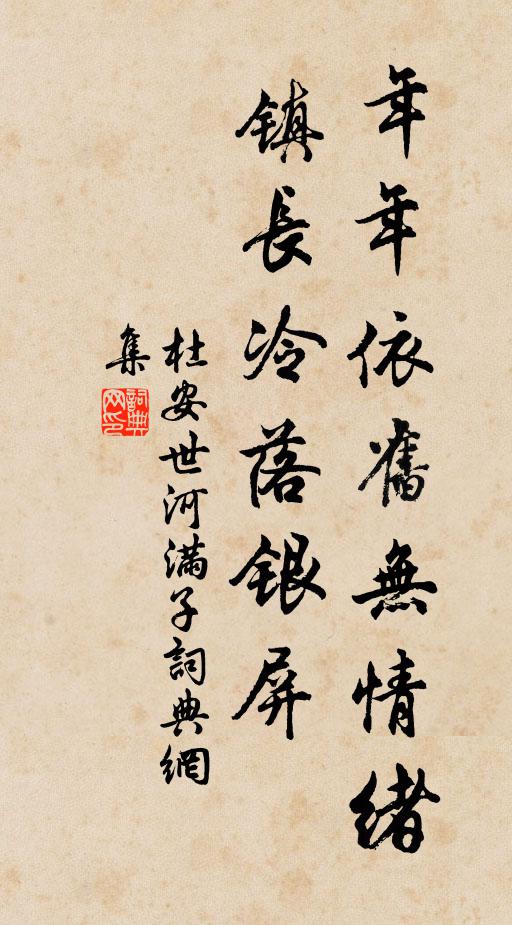 年年依舊無情緒
鎮長冷落銀屏
杜安世河滿子詞典網
集
詞典網印